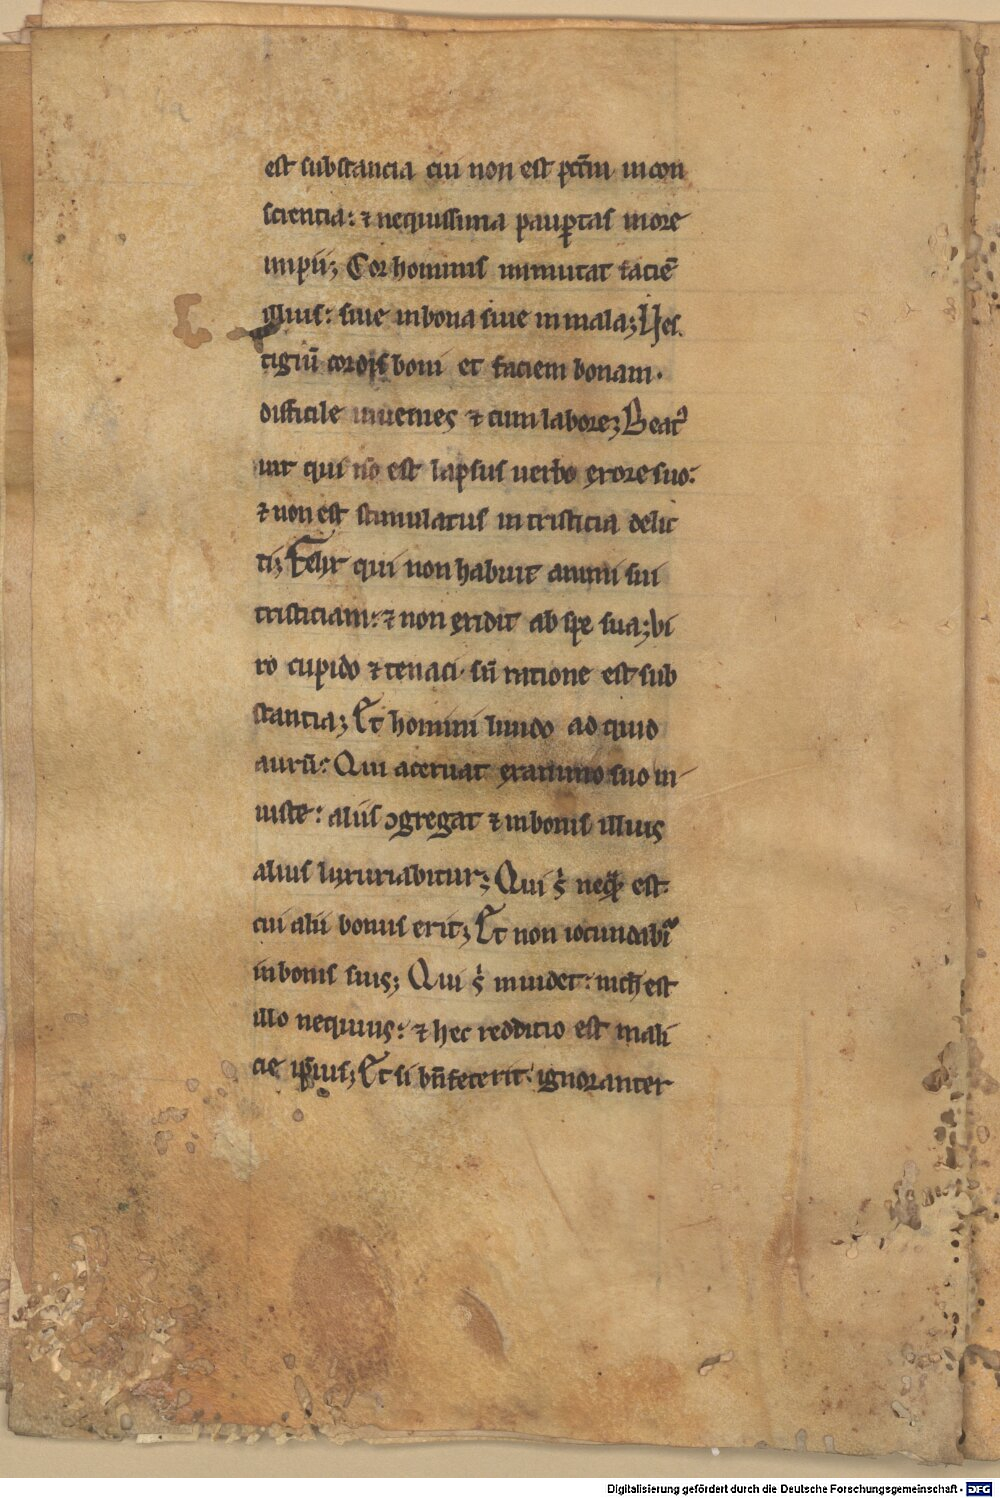 est substancia cui non est pctm̄ in con
sciencia: ⁊ nequissima paup̄tas in ore
impii; Cor hominis inmutat faciē
illius: siue in bona siue in mala; Ves
tigiū cordis boni et faciem bonam.
difficile inuenies ⁊ cum labore; Beat᾽
uir qui nō est lapsus uerbo ex ore suo:
⁊ non est stimulatus in tristicia delic
ti; Felix qui non habuit animi sui
tristiciam: ⁊ non excidit ab spe sua; Vi
ro cupido ⁊ tenaci. sn̄ ratione est sub
stantia; Et homini liuido ad quid
aurū: Qui aceruat ex animo suo in
iuste: aliis ↄgregat ⁊ in bonis illius
alius luxuriabitur; Qui s᾽ neq̄ꝫ est.
cui alii bonus erit; Et non iocundabit᾽
in bonis suis; Qui s᾽ inuidet: nich̄ est
illo nequius: ⁊ hec redditio est mali
cie ip̄ius; Et si bn̄ fecerit. ignoranter
Digitalisierung gefördert durch die Deutsche Forschungsgemeinschaft - DFG